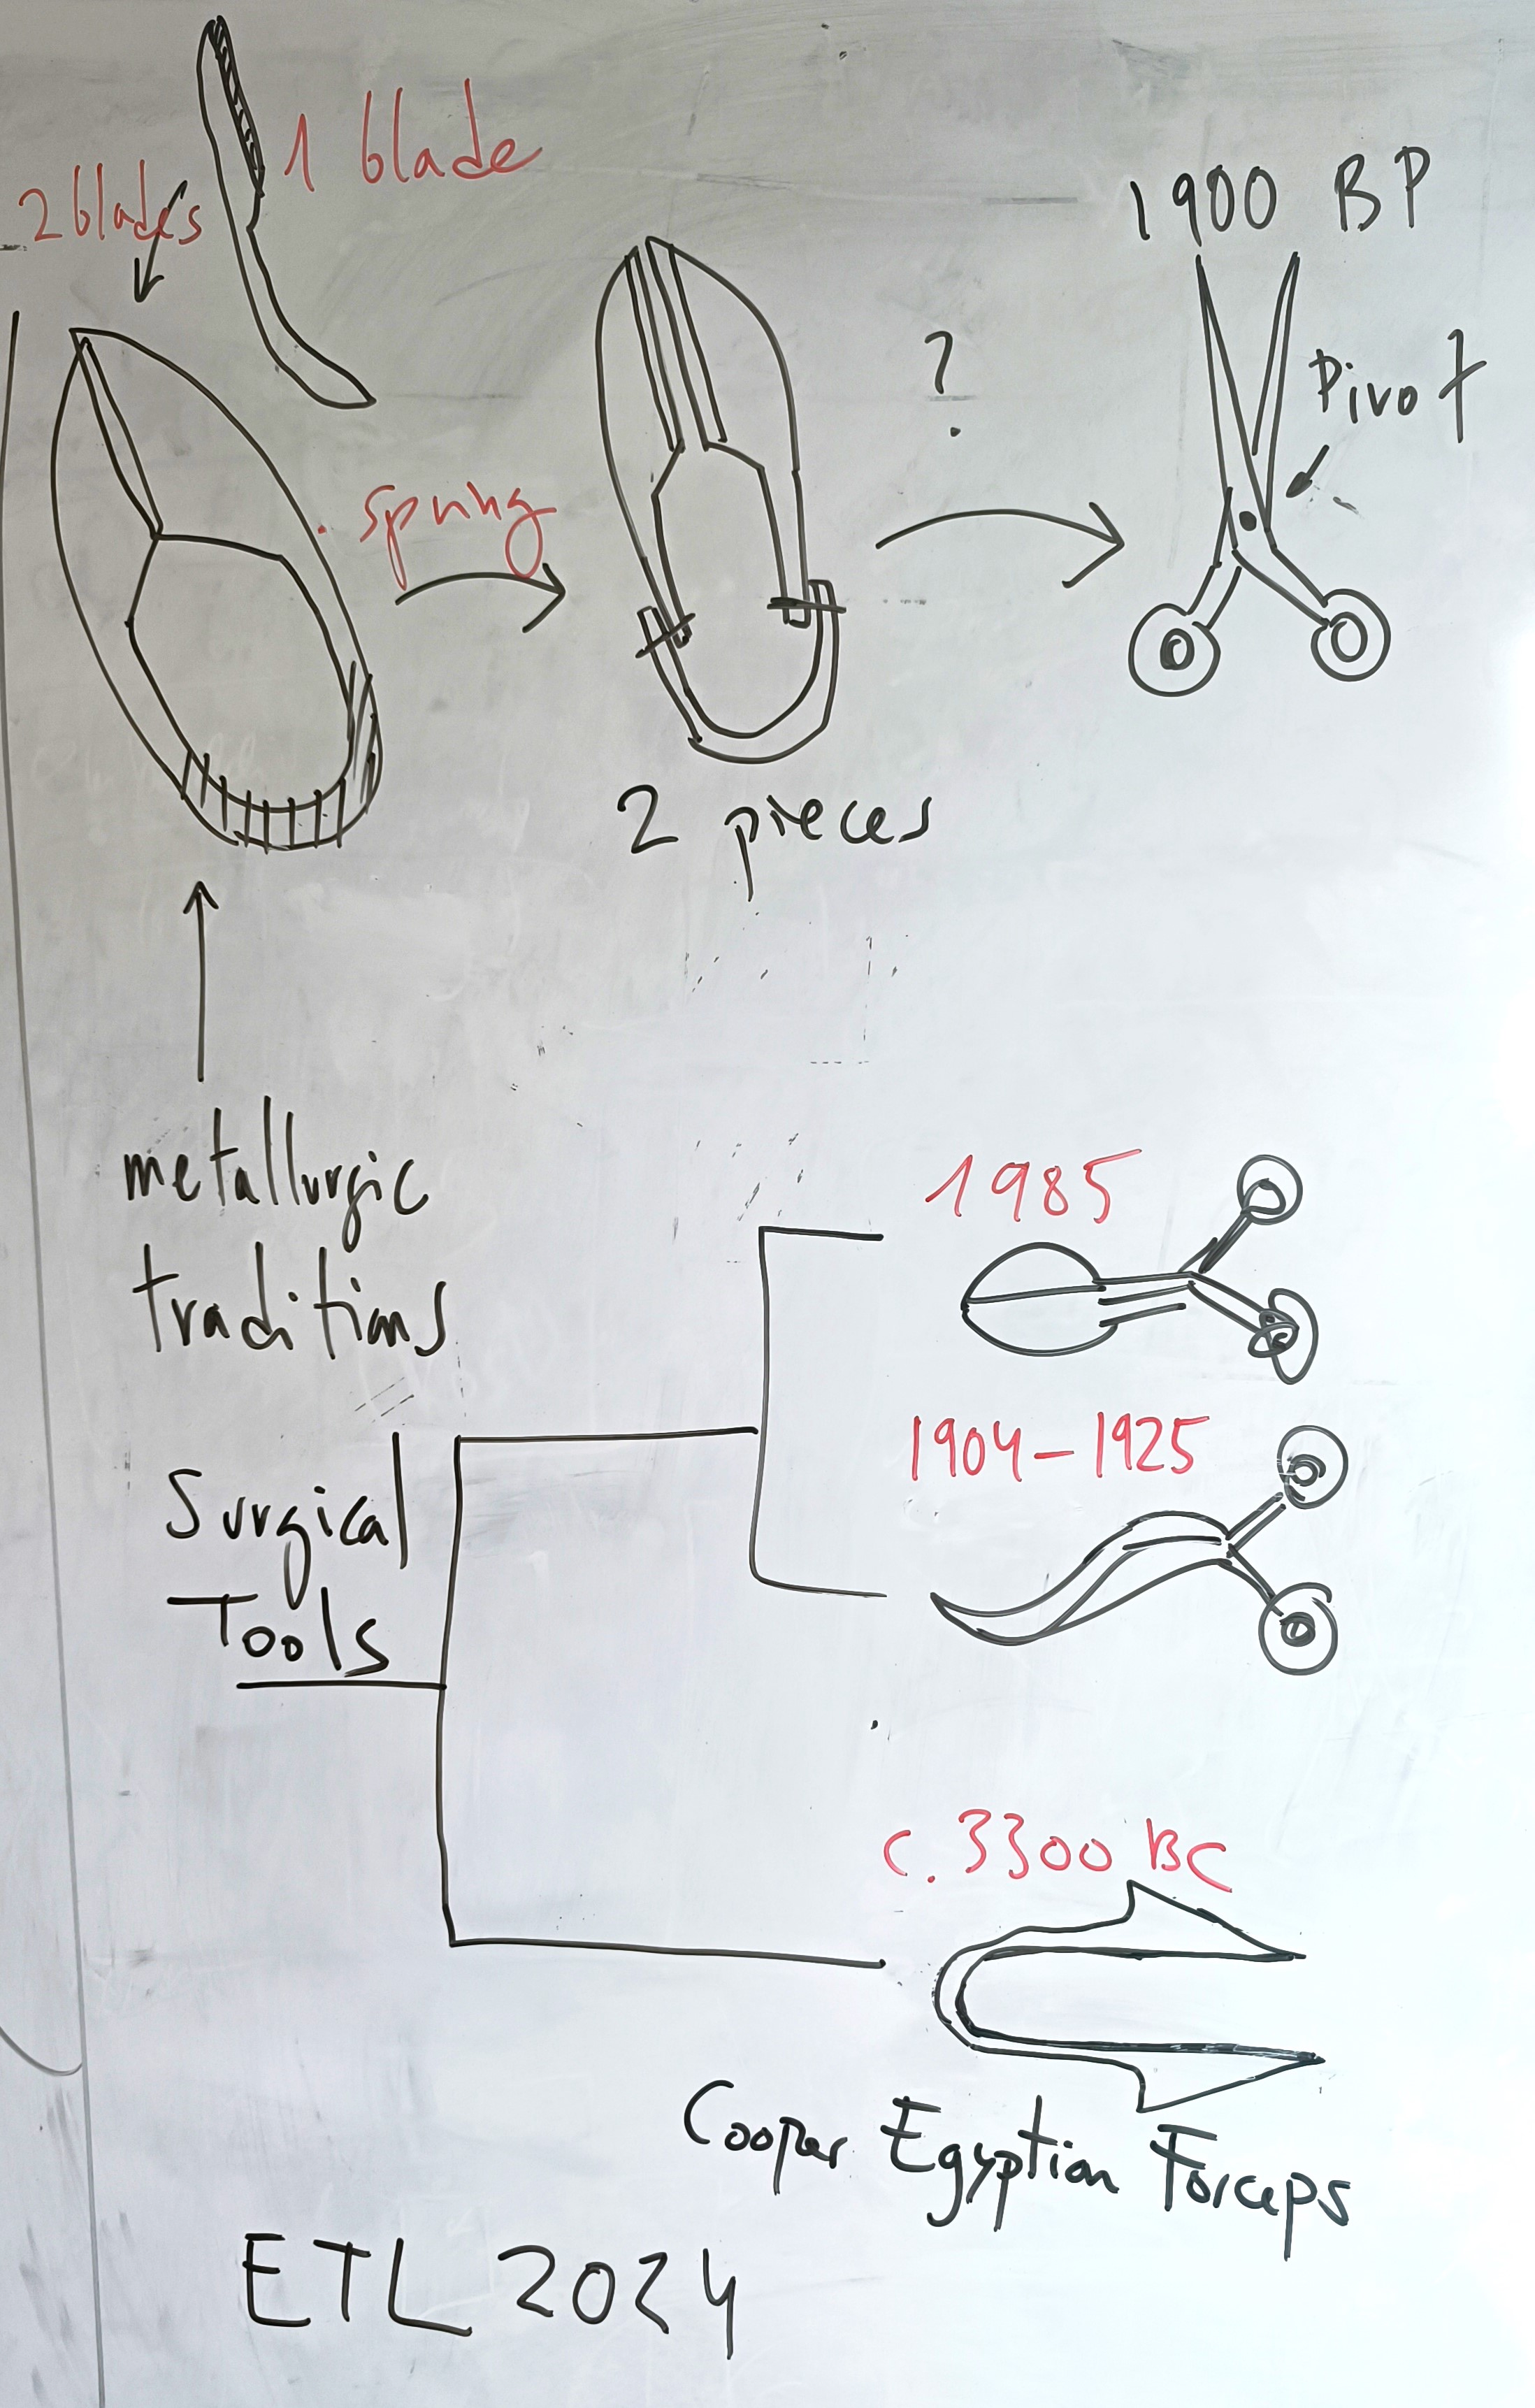 1 blade
2 blades
1900 BP
?
Pivot
spring
2 pieces
metallurgic
traditions
1985
1904-1925
Surgical
Tools
c. 3300 BC
Cooper Egyptian Forceps
ETL 2024